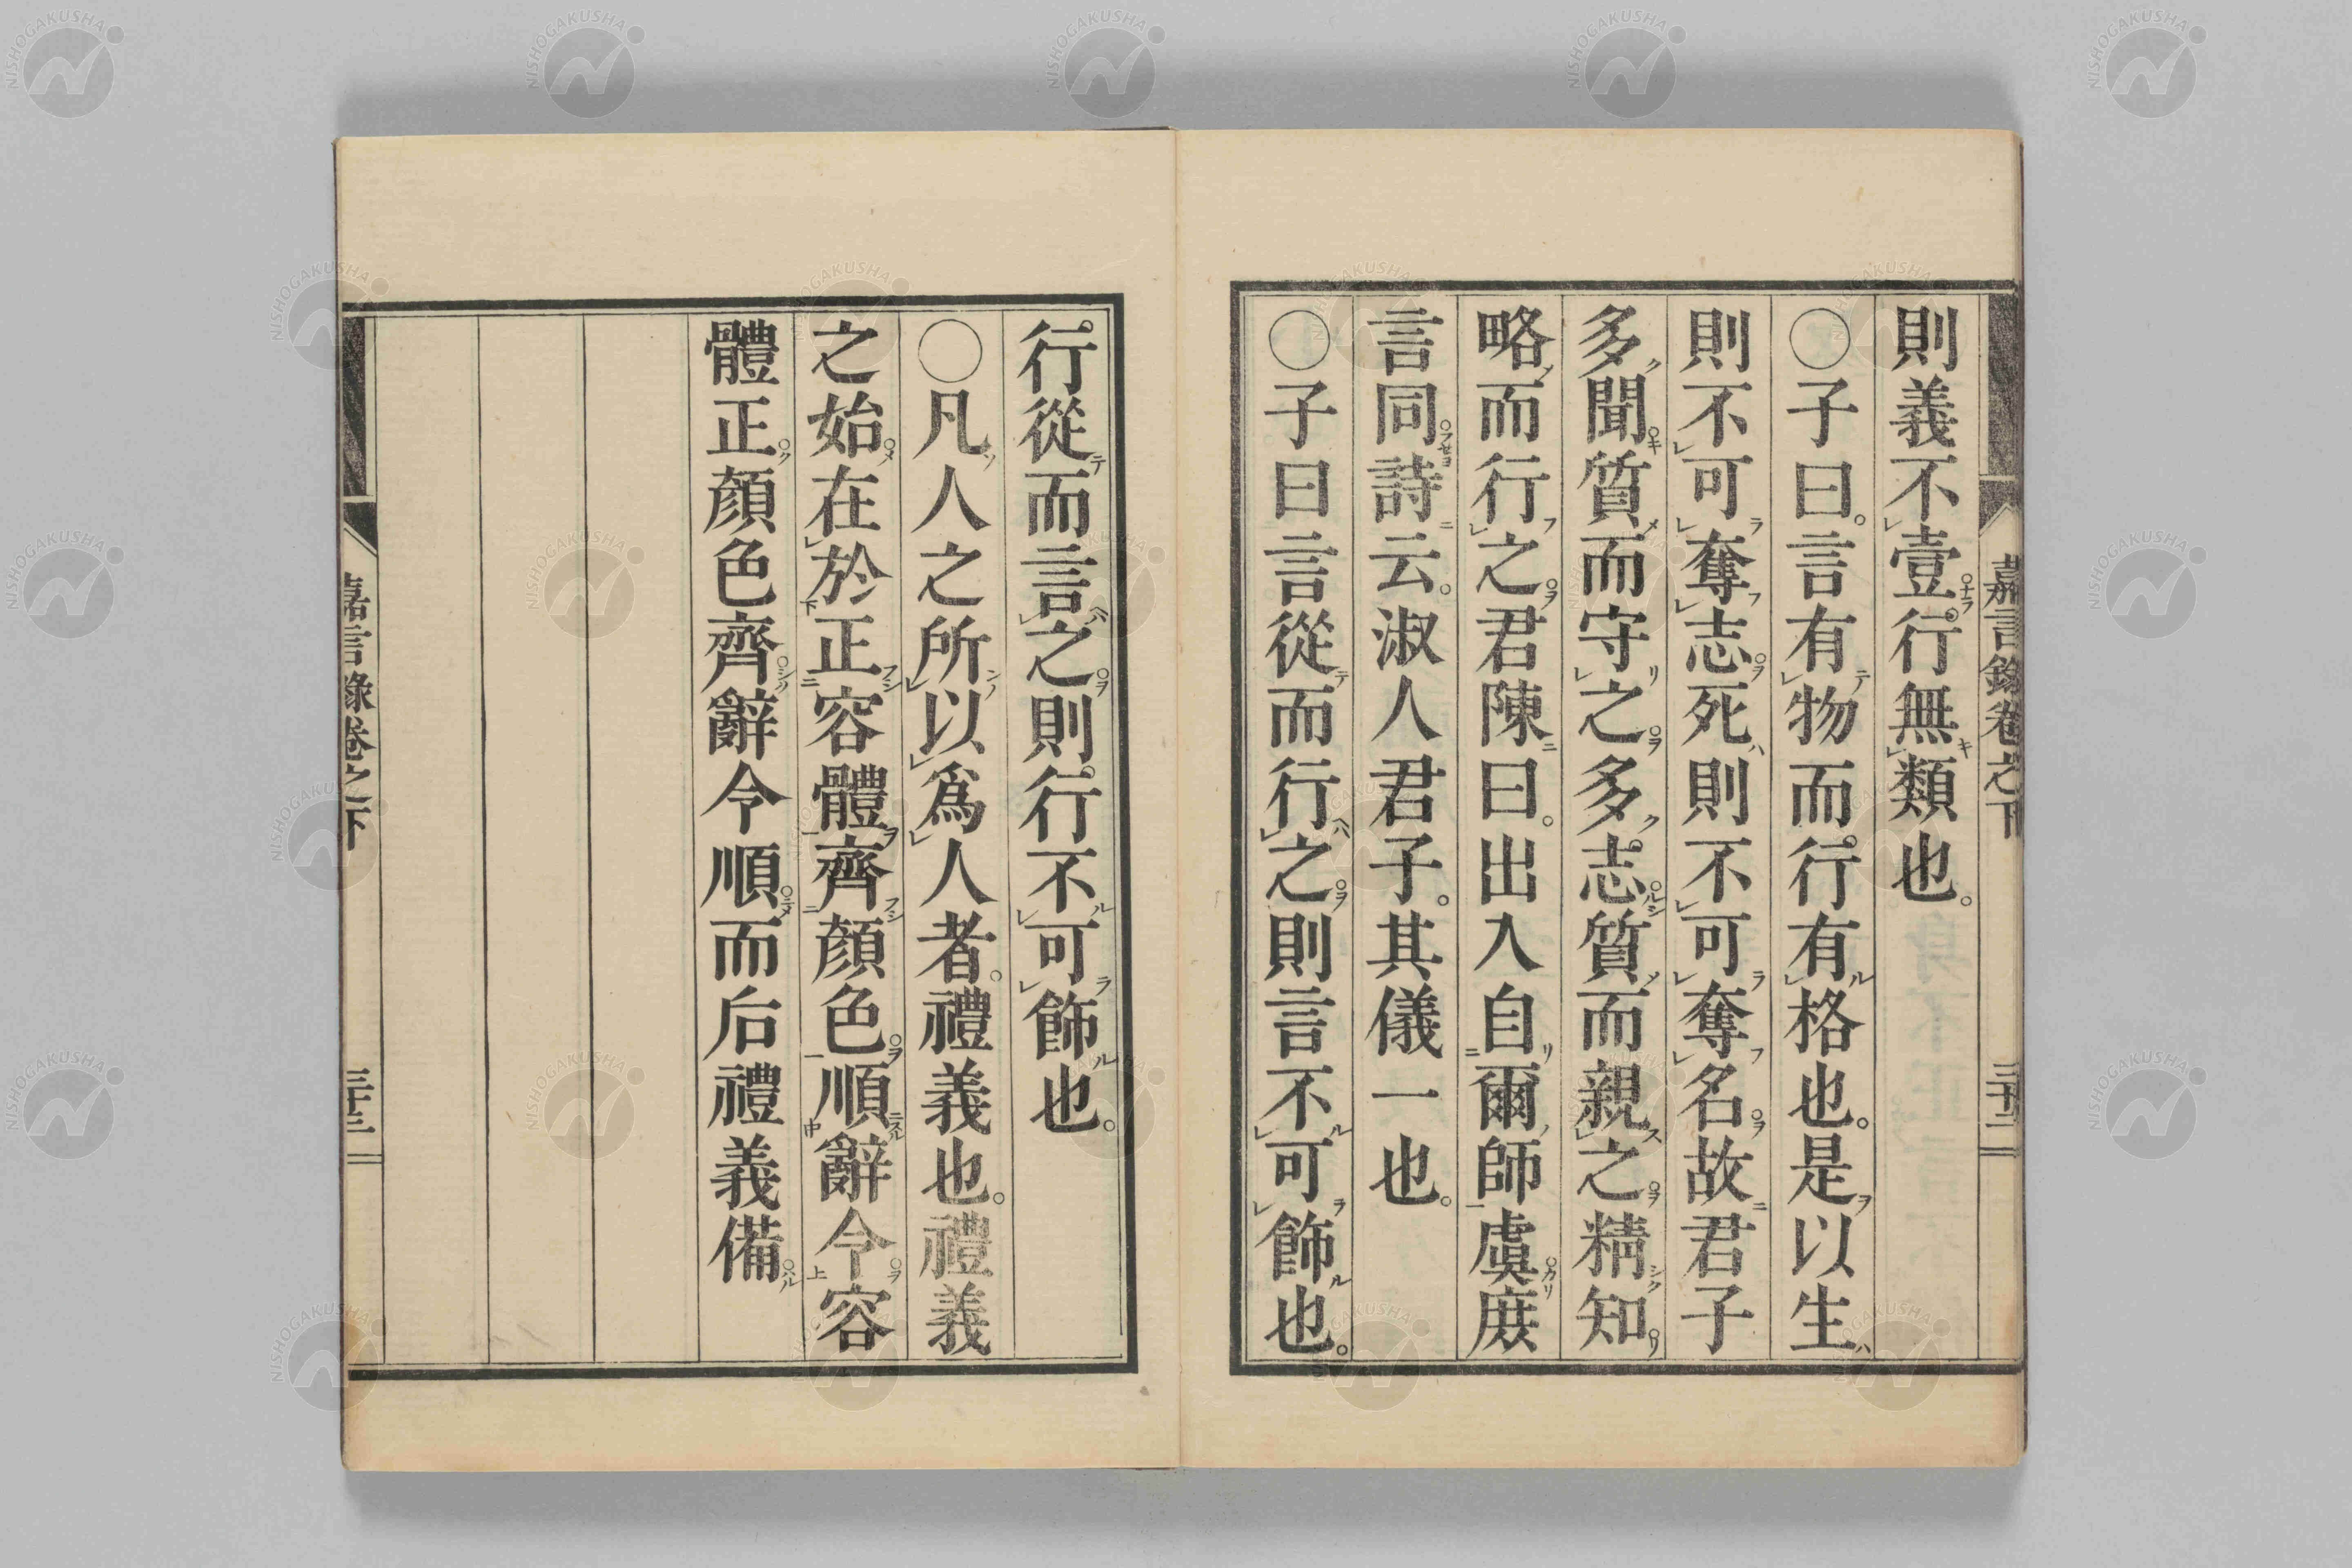 則義不壹行無類也。
〇子曰。言有物而行有格也。是以生
則不可奪志死則不可奪名故君子
多聞質而守之多志質而親之精知
略而行之君陳曰。出入自爾師虞庶
言同詩云。淑人君子。其儀一也。
〇子曰言從而行之則言不可飾也。
嘉言錄卷之下
三十二
行從而言之則行不可飾也。
〇凡人之所以爲人者。禮義也。禮義
之始在於正容體齊顏色順辭令容
體正顏色齊辭令順而后禮義備
嘉言錄卷之下
三十三
NISHOGAKUSHA